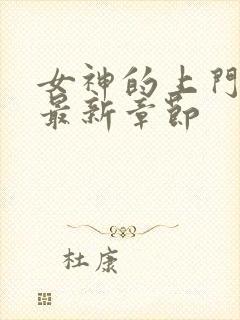 女神的上門
最新章節
杜康